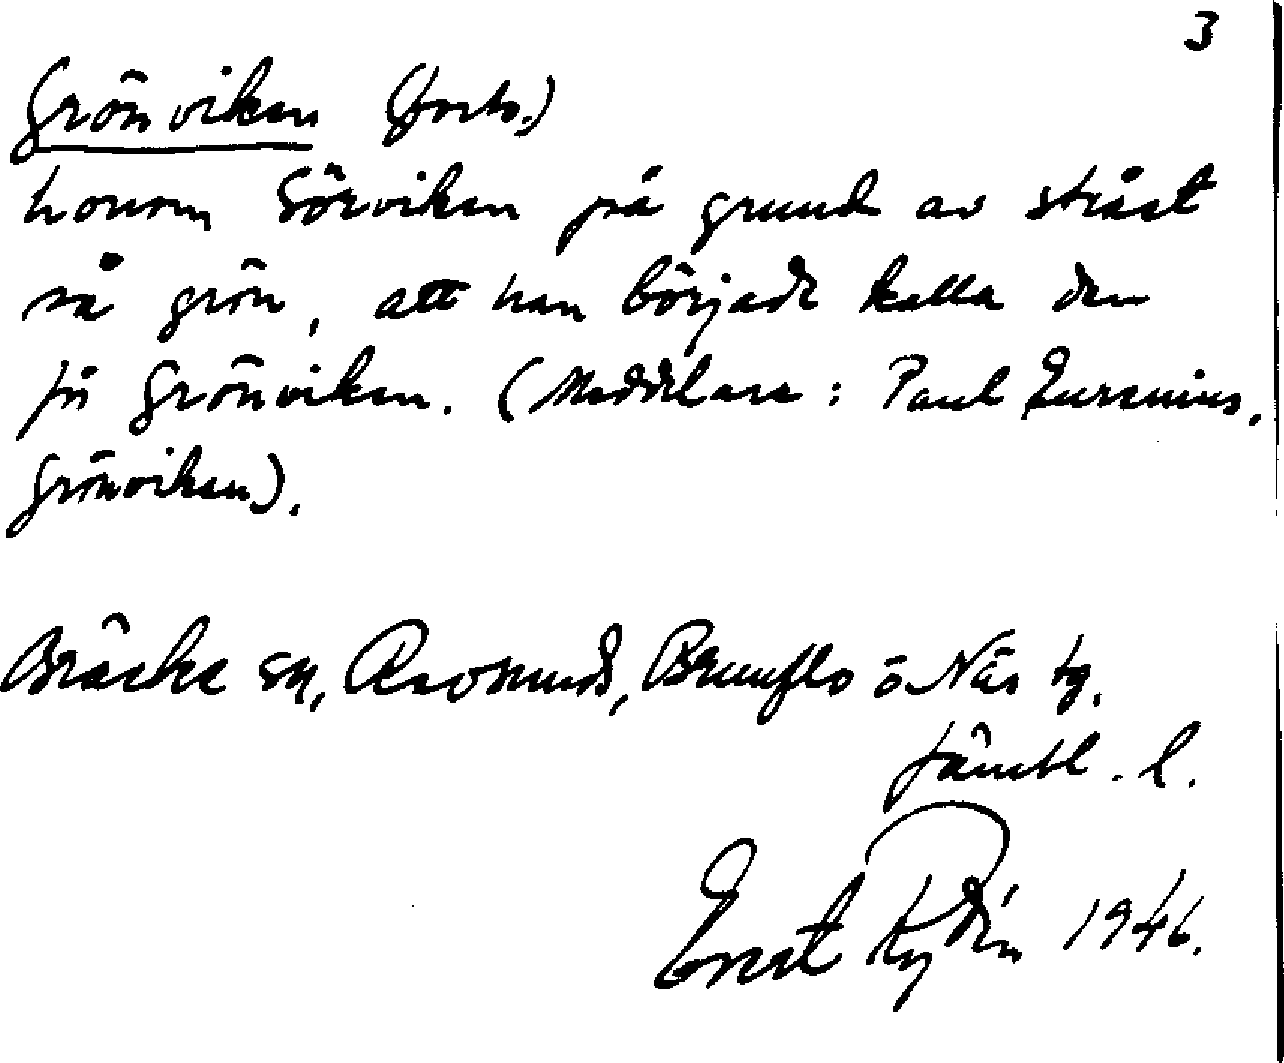 3
Grönviken (forts.)
honom Sörviken på grund av stråset
så grön, att han började kalla den
för Grönviken. (Meddelare: Paul
Grönviken).
Bräcke sn, Ravsunds, Brunflo o Näs tg.
Jämtl. l.
Ernst Rydin 1946.